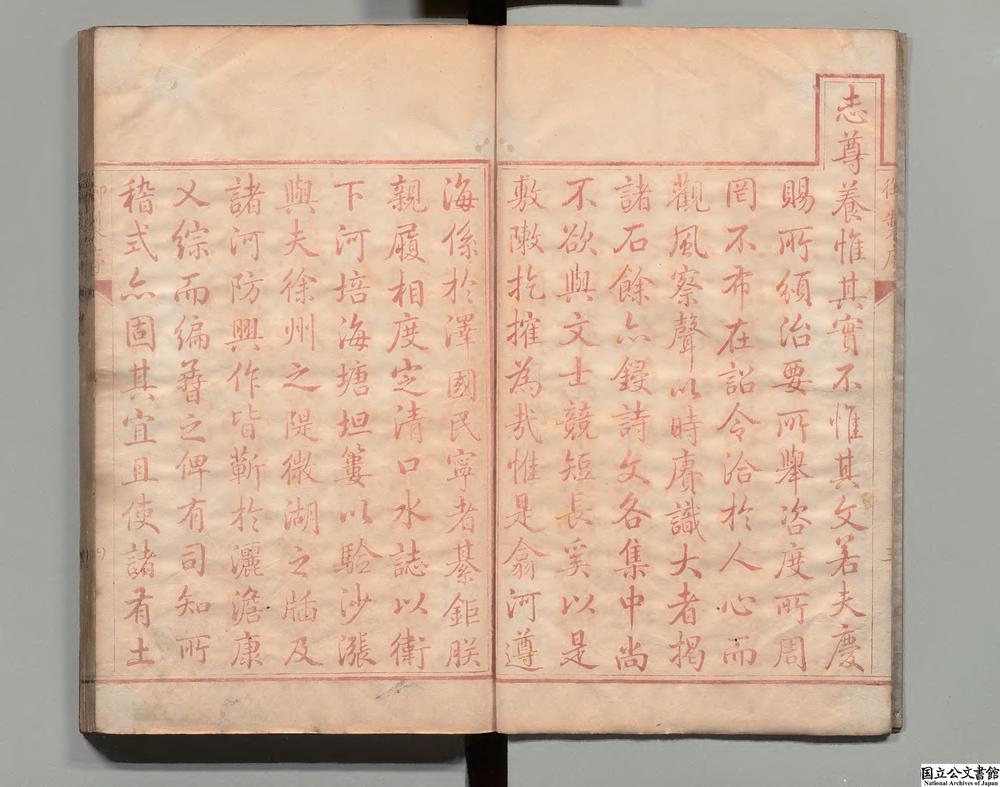 御製序
三
志尊養惟其實不惟其文若夫慶
賜所頒治要所舉咨度所周
罔不布在詔令洽於人心而
觀風察聲以時賡識大者揭
諸石餘亦鋟詩文各集中尚
不欲與文士競短長奚以是
敷敶扢搉為哉惟是翕河遵
海係於澤國民寧者綦鉅朕
親履相度定清口水誌以衛
下河培海塘坦簍以騐沙漲
與夫徐州之隄微湖之牐及
諸河防興作皆蘄於灑澹康
乂綜而編之俾有司知所
稽式亦固其宜且使諸有土
国立公文書館
National Archives of Japan